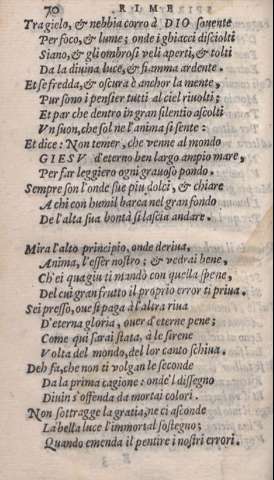 70 RIME
Tra gielo, & nebbia corro à DIO souente
Per foco, & lume; onde i ghiacci disciolti
Siano, & gli ombrosi veli aperti, & tolti
Da la diuina luce, & fiamma ardente.
Et se fredda, & oscura è anchor la mente,
Pur sono i pensier tutti al ciel riuolti;
Et par che dentro in gran silentio ascolti
Vn suon, che sol ne l'anima si sente:
Et dice: Non temer, che venne al mondo
GIESV d'eterno ben largo ampio mare,
Per far leggiero ogni grauoso pondo.
Sempre son l'onde sue piu dolci, & chiare
A chi con humil barca nel gran fondo
De l'alta sua bontà si lascia andare.
Mira l'alto principio, onde deriua,
Anima, l'esser nostro; & vedrai bene,
Ch'ei quagiu ti mandò con quella spene,
Del cui gran frutto il proprio error ti priua.
Sei presso, oue si paga à l'altra riua
D'eterna gloria, ouer d'eterne pene;
Come qui sarai stata, à le sirene
Volta del mondo, del lor canto schiua.
Deh fa, che non ti volgan le seconde
Da la prima cagione: ond'il dissegno
Diuin s'offenda da mortai colori.
Non sottragge la gratia, ne ci asconde
La bella luce l'immortal sostegno;
Quando emenda il pentire i nostri errori.